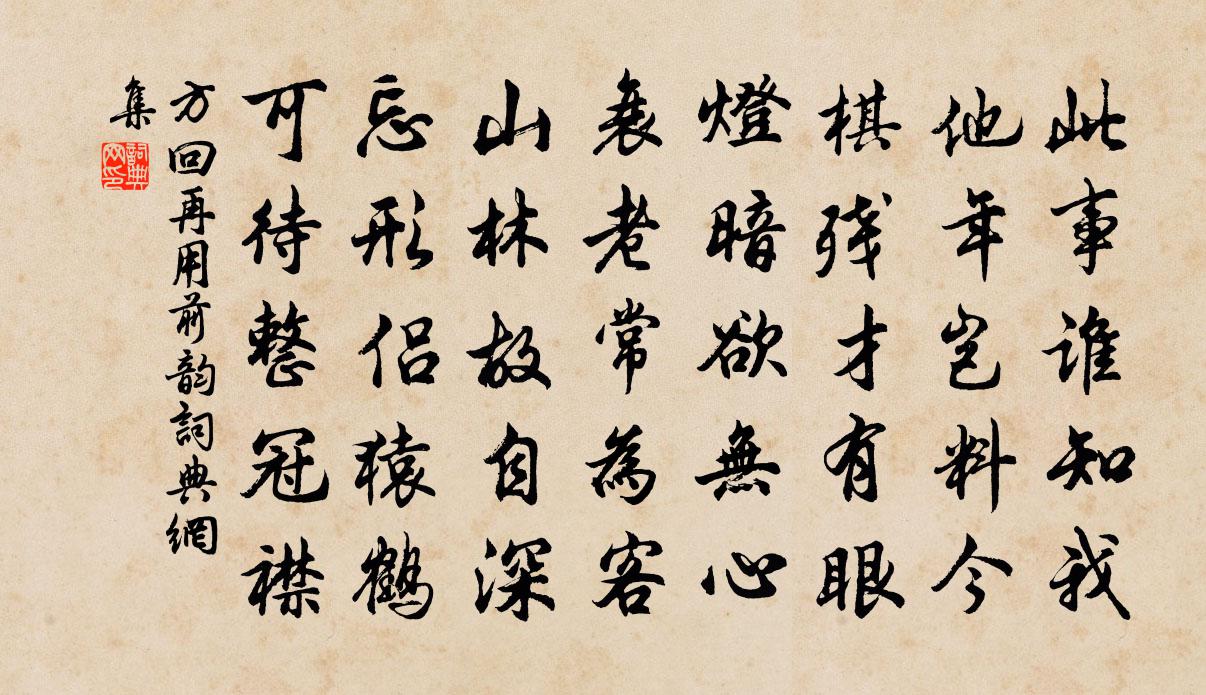 此事谁知我
他年岂料今
棋残才有眼
燈暗欲無心
衰老常為客
山林故自深
忘形侣猿鶴
可待整冠襟
方回再用前韵詞典網
集
詞典
网印